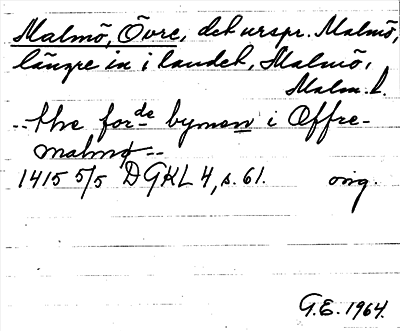 Malmö, Övre, det urspr. Malmö,
längre in i landet, Malmö,
Malm. L.
-- the forde bymen i Offre-
malmø --
1415 5/5 DGKL 4, s. 61. orig.
G.E. 1964.